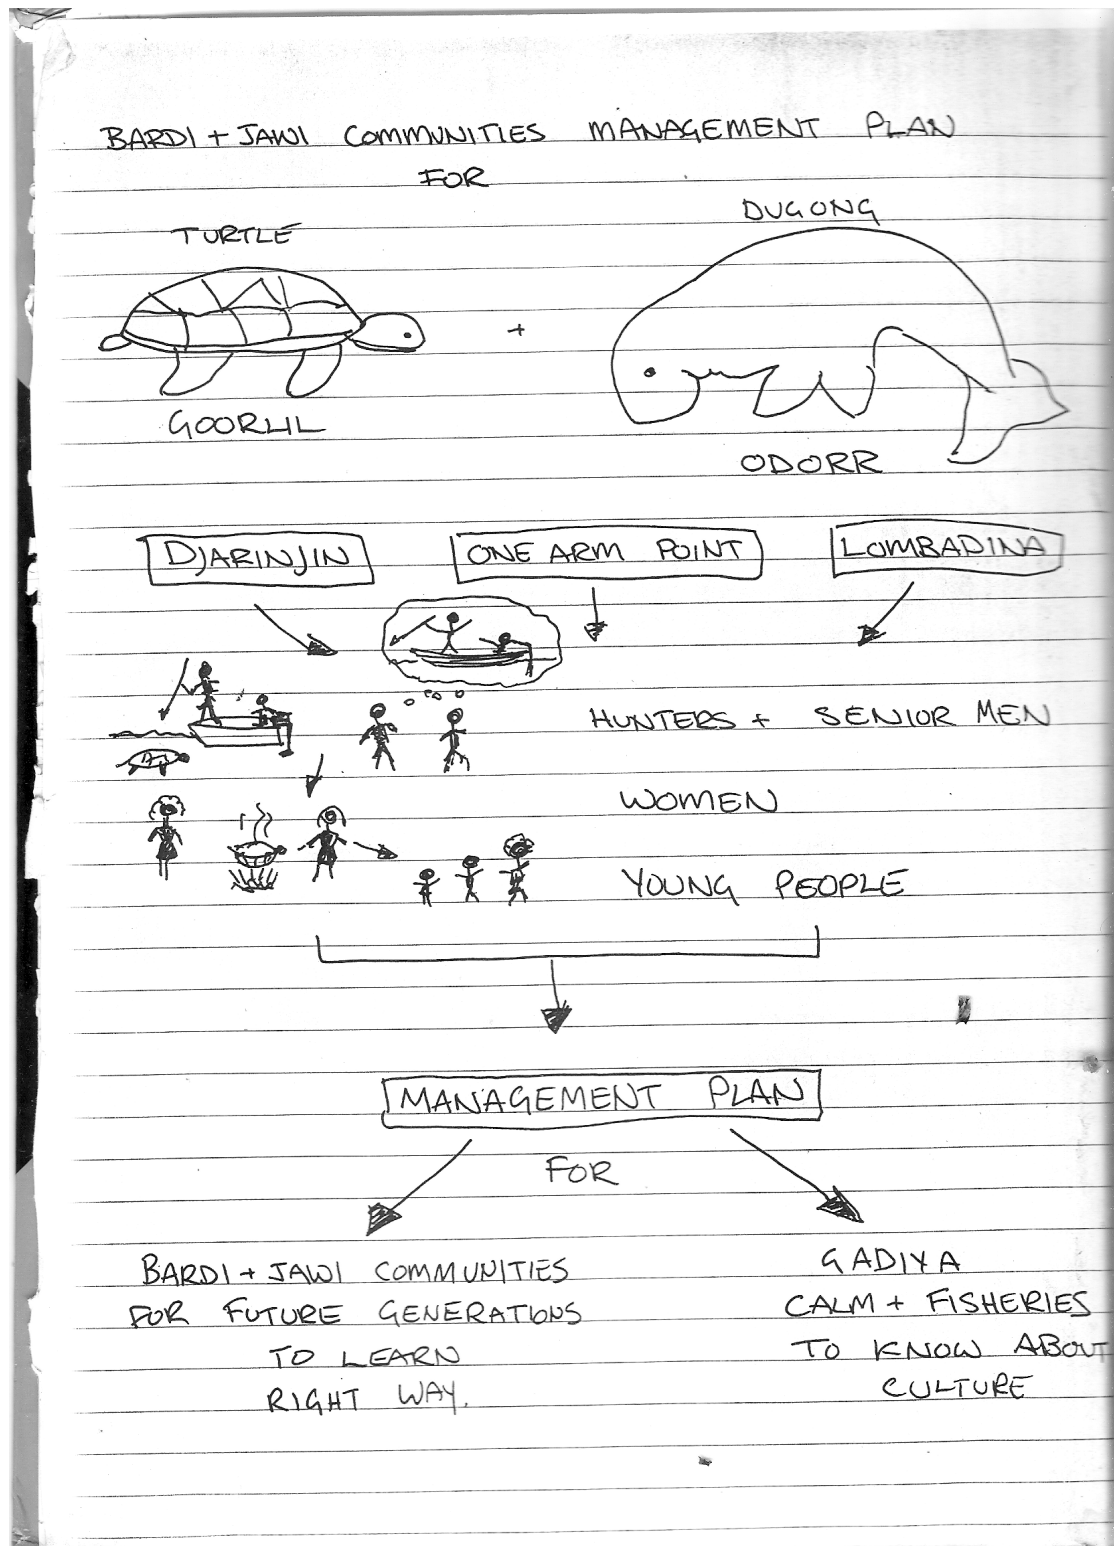 BARDI + JAWI COMMUNITIES MANAGEMENT PLAN
FOR
TURTLE
DUGONG
+
GOORLIL
ODORR
DJARINJIN
ONE ARM POINT
LOMBADINA
HUNTERS + SENIOR MEN
WOMEN
YOUNG PEOPLE
MANAGEMENT PLAN
FOR
BARDI + JAWI COMMUNITIES
FOR FUTURE GENERATIONS
TO LEARN
RIGHT WAY.
GADIYA
CALM + FISHERIES
TO KNOW ABOUT
CULTURE